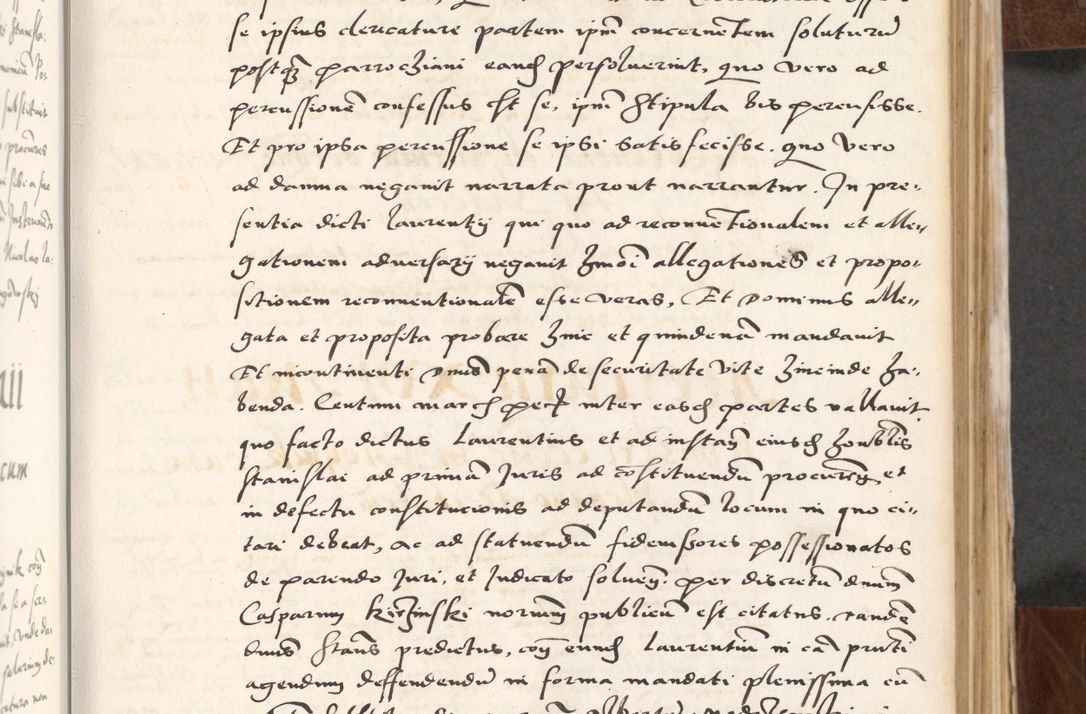 se ipsius clericature partem ipm̄ concernentem soluturū
postq̄ parrochiani eand persoluerint, quo vero ad
percussionē confessus est se, ipm̄ stipula bis percusisse.
Et pro ipsa percussione se ipsi satisfecisse. quo vero
ad damna negauit narrata prout narrantur. In pre-
sentia dicti Laurentij qui quo ad reconuentionalem et alle-
gationem adversarij negauit hmōi allegationes et propo-
sitionem reconuentionalē esse veras, Et dominus alle-
gata et proposita probare hinc et quindenā mandauit
Et incontinenti dnus penā de securitate vite hincinde ha-
benda. Centum march pec inter easd partes vallauit
quo facto dictus Laurentius et ad instan eiusd honblis
Stanislai ad primā Juris ad cōstituendū procurem et
in defectu constitucionis ad deputandū locum in quo ci-
tari debeat, ac ad statuendū fideiussores possessionatos
de parendo Juri, et Judicato soluen. per discretū dnum
Casparum notm publicū est citatus. eandē
dnus Stans predictus, con eund Laurentiū in cā pnti
agendum deffendendū in forma mandati plenissima cū